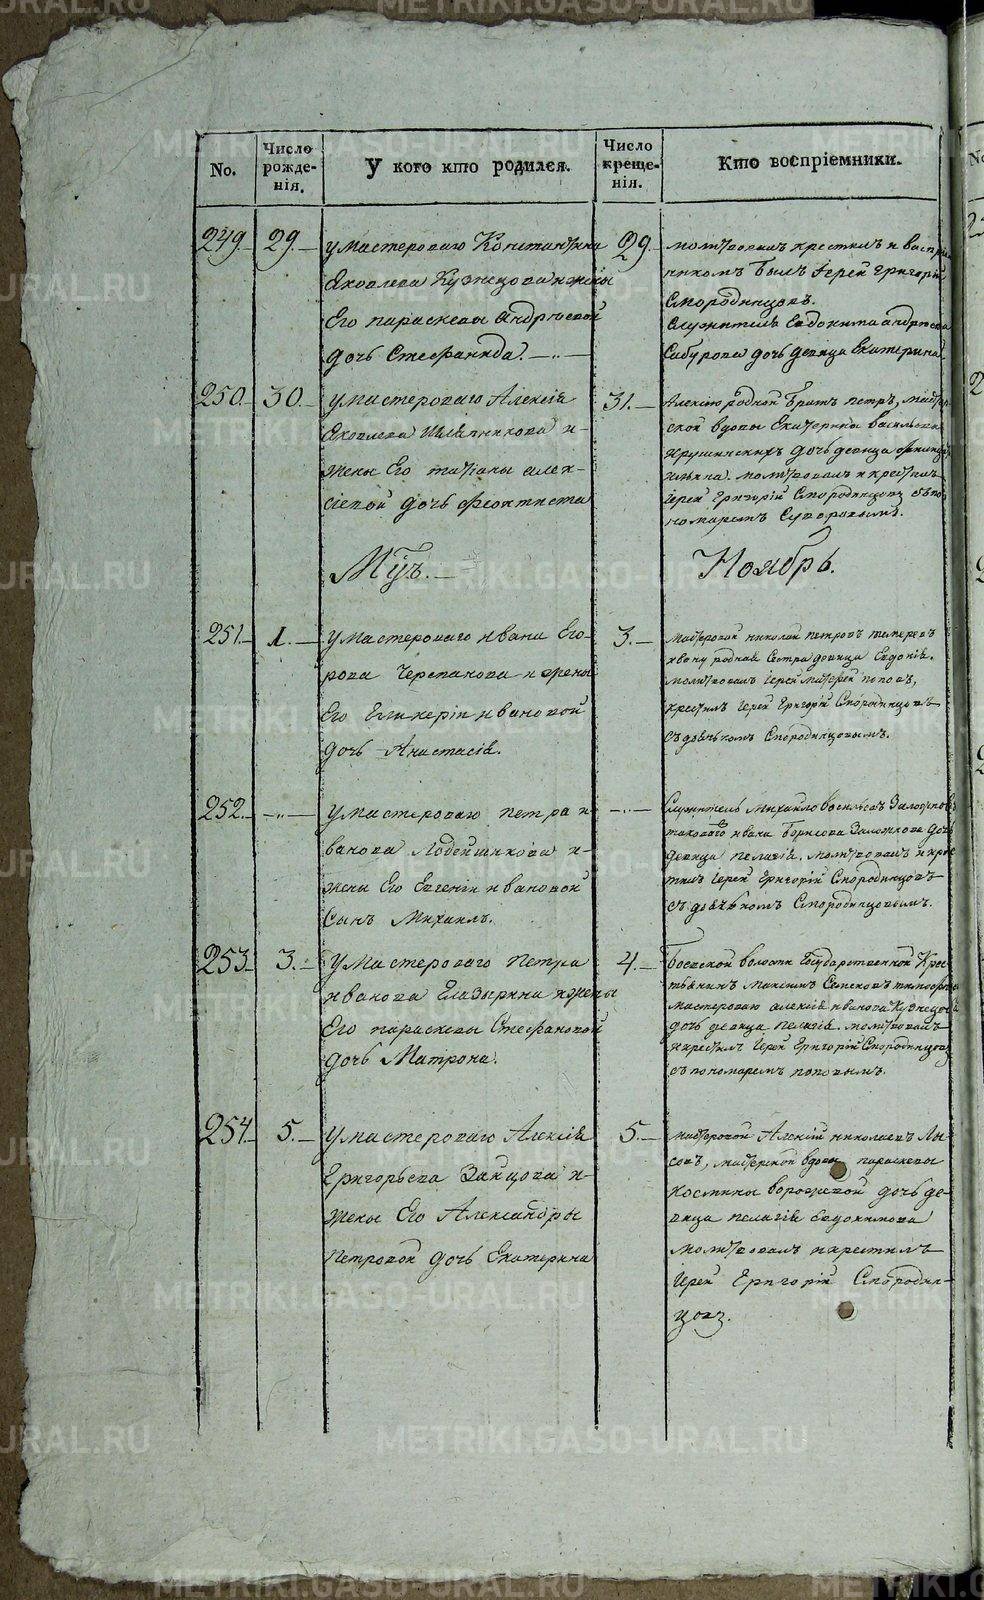 No.
Число рожде-
нія.
У кого кто родился.
Число креще-
нія.
Кто воспріемники.
249. 29.
у мастероваго Константина
Яковлева Кузнецова и жены
Его параскевы Андреевой
дочь Стефанида.
29.
молитвовалъ крестилъ и воспріе
никомъ былъ Іерей григорій
Смородинцовъ.
Служителя Евдокима андреева
Сабурова дочь девица Екатерина.
250. 30.
у мастероваго Алексія
Яковлева и-
жены Его татіаны алек-
сіевой дочь феоктиста
31.
Алексію родной братъ петръ,
ской вдовы Екатерины васильевой
дочь девица
молитвовалъ и крестилъ
Іерей григорій Смородинцовъ съ по-
номаремъ Суворовымъ.
Мцъ.
Ноябрь.
251. 1.
у мастероваго ивана Его-
рова Черепанова и жены
Его Гликеріи ивановой
дочь Анастасія.
3.
мастеровой николай петровъ
ивану родная Сестра девица Евдокія.
молитвовалъ Іерей поповъ,
крестилъ Іерей Григорій Смородинцовъ
съ дьячкомъ Смородинцовымъ.
252.
у мастероваго петра и-
ванова Лобенщикова и-
жены Его Евгеніи ивановой
Сынъ Михаилъ.
Служитель Михайло васильевъ
таковаго ивана Борисова дочь
девица пелагія. молитвовалъ и крес
тилъ Іерей Григорій Смородинцовъ
съ дьячкомъ Смородинцовымъ.
253. 3.
у мастероваго петра
иванова Глазырина и жены
Его параскевы Стефановой
дочь Матрона.
4.
волости Государственной Кре-
стьянинъ Максимъ Семеновъ
мастероваго алексія иванова Кузнецова
дочь девица пелагія. молитвовалъ
и крестилъ Іерей Григорій Смородинцовъ
съ пономаремъ поповымъ.
254. 5.
у мастероваго Алексія
Григорьева Зайцова и-
жены Его Александры
петровой дочь Екатерина
5.
мастеровой Алексій николаевъ Лы-
совъ, мастерской вдовы параскевы
Космины дочь де-
вица пелагія евдокимова
молитвовалъ и крестилъ
Іерей Григорій Смородин-
цовъ.
METRIKI.GASO-URAL.RU